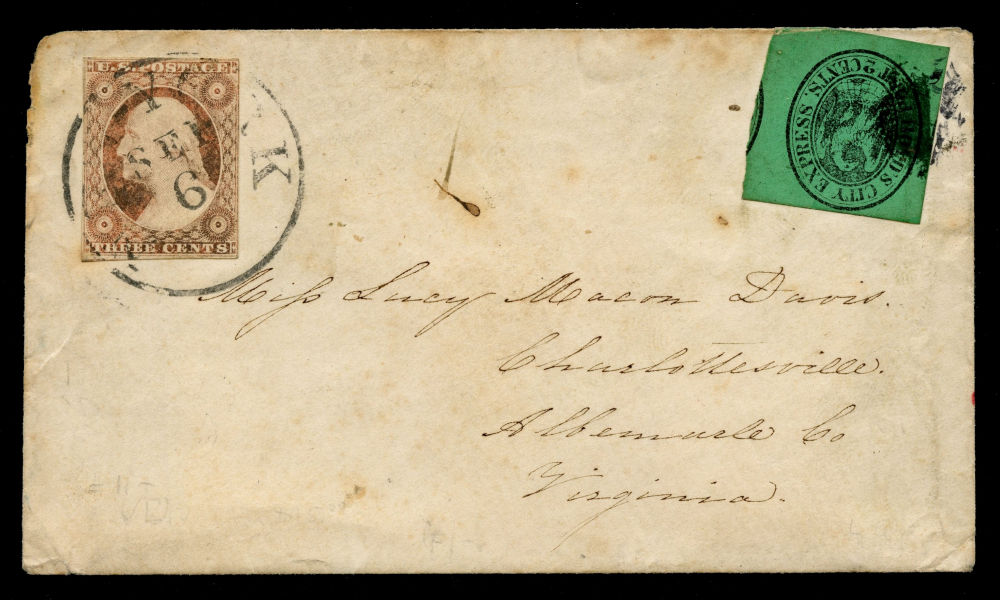 U.S. POSTAGE
THREE CENTS
SEP
6
CITY EXPRESS. 2 CENTS.
Miss Lucy Macon Davis.
Charlottesville.
Albemarle Co
Virginia.